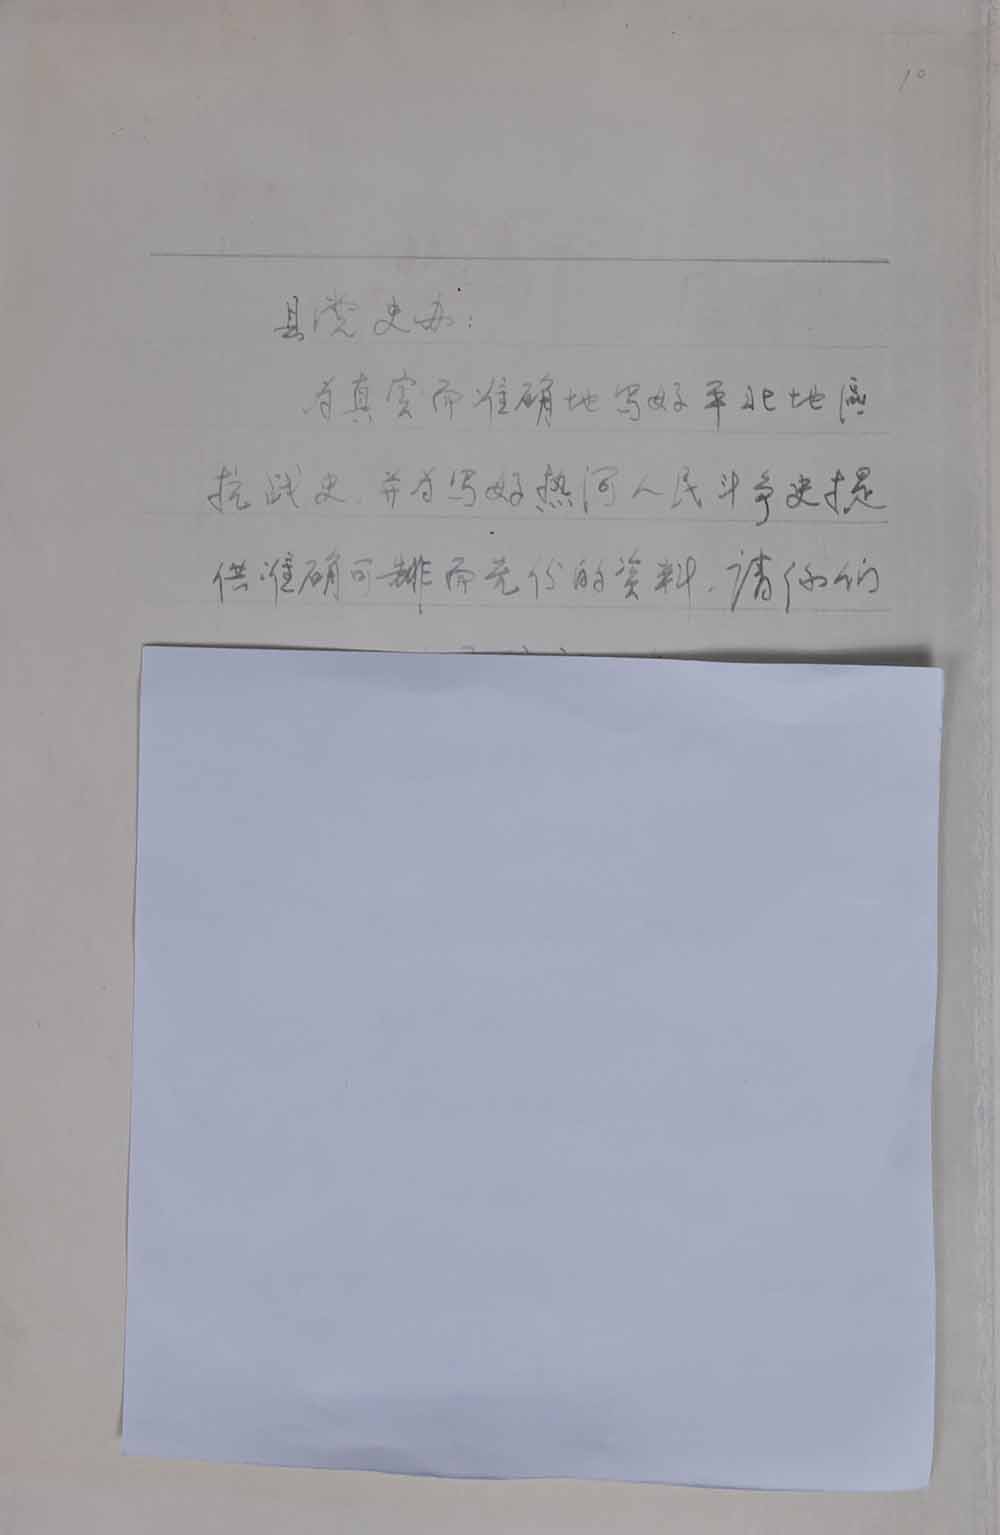 10
县党史办：
为真实而准确地写好平北地区
抗战史、并为写好热河人民斗争史提
供准确可靠而充份的资料，请你们